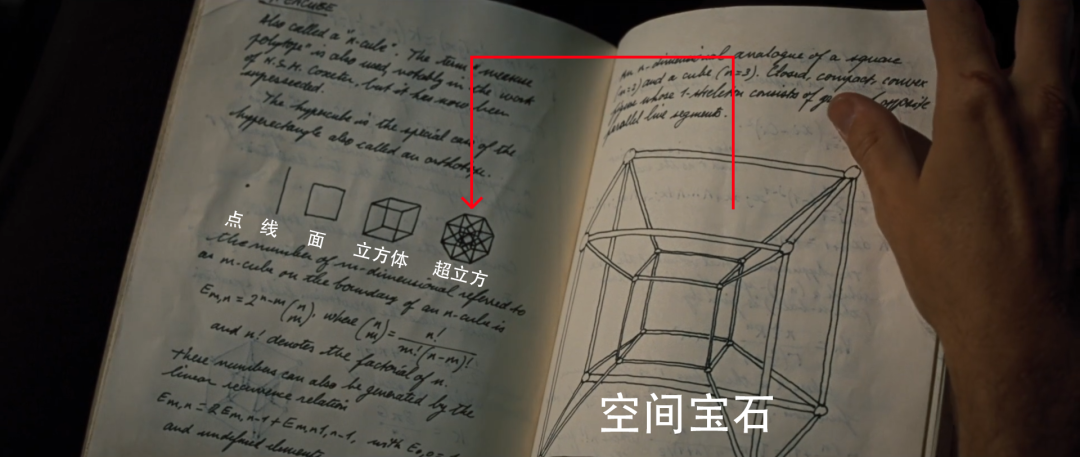 also called a "n-cube". The term "measure
polytope" is also used, notably in the work
of H.S.M. Coxeter, but it has now been
superseded.
The hypercube is the special case of the
hyperrectangle also called an orthotope.
点 线 面 立方体 超立方
the number of m-dimensional referred to
as m-cube on the boundary of an n-cube is
Em,n = 2^n-m (n m), where (n m) = n! / m!(n-m)!
and n! denotes the factorial of n.
These numbers can also be generated by the
linear recurrence relation
Em,n = 2Em,n-1 + Em-1,n-1, with E0,0 =
and undefined elements
an n-dimensional analogue of a square
(n=2) and a cube (n=3). Closed, compact, convex
figure whose 1-skeleton consists of opposite
parallel line segments.
空间宝石